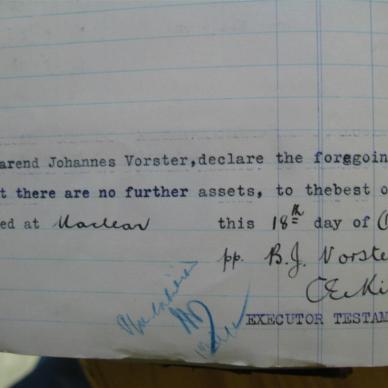 arend Johannes Vorster,declare the foregoin
t there are no further assets, to thebest o
ed at Maclear this 18th day of O
pp. B.J. Vorste
CEKi
EXECUTOR TESTAM